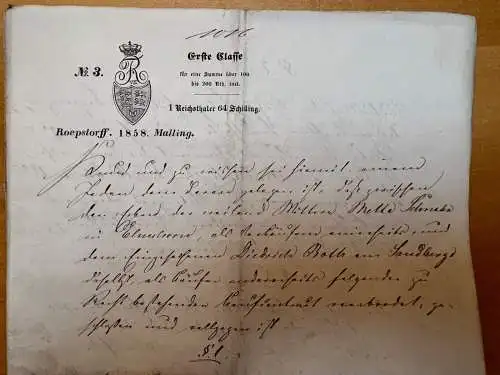 1016
Erste Classe
№ 3.
für eine Summe über 100
bis 200 Rth. incl.
1 Reichsthaler 64 Schilling.
Roepstorff. 1858. Malling.
Kund und zu wissen sei hiemit einem
Jeden dem daran gelegen ist, daß zwischen
den Erben der weiland Wittwe Metta
in Elmshorn, als Verkäufern einerseits und
dem Eingesessenen Diederich Both am Sandberge
daselbst, als Käufer andererseits folgender zu
Recht bestehender Kaufcontract verabredet, ge-
schlossen und vollzogen ist
§ 1.